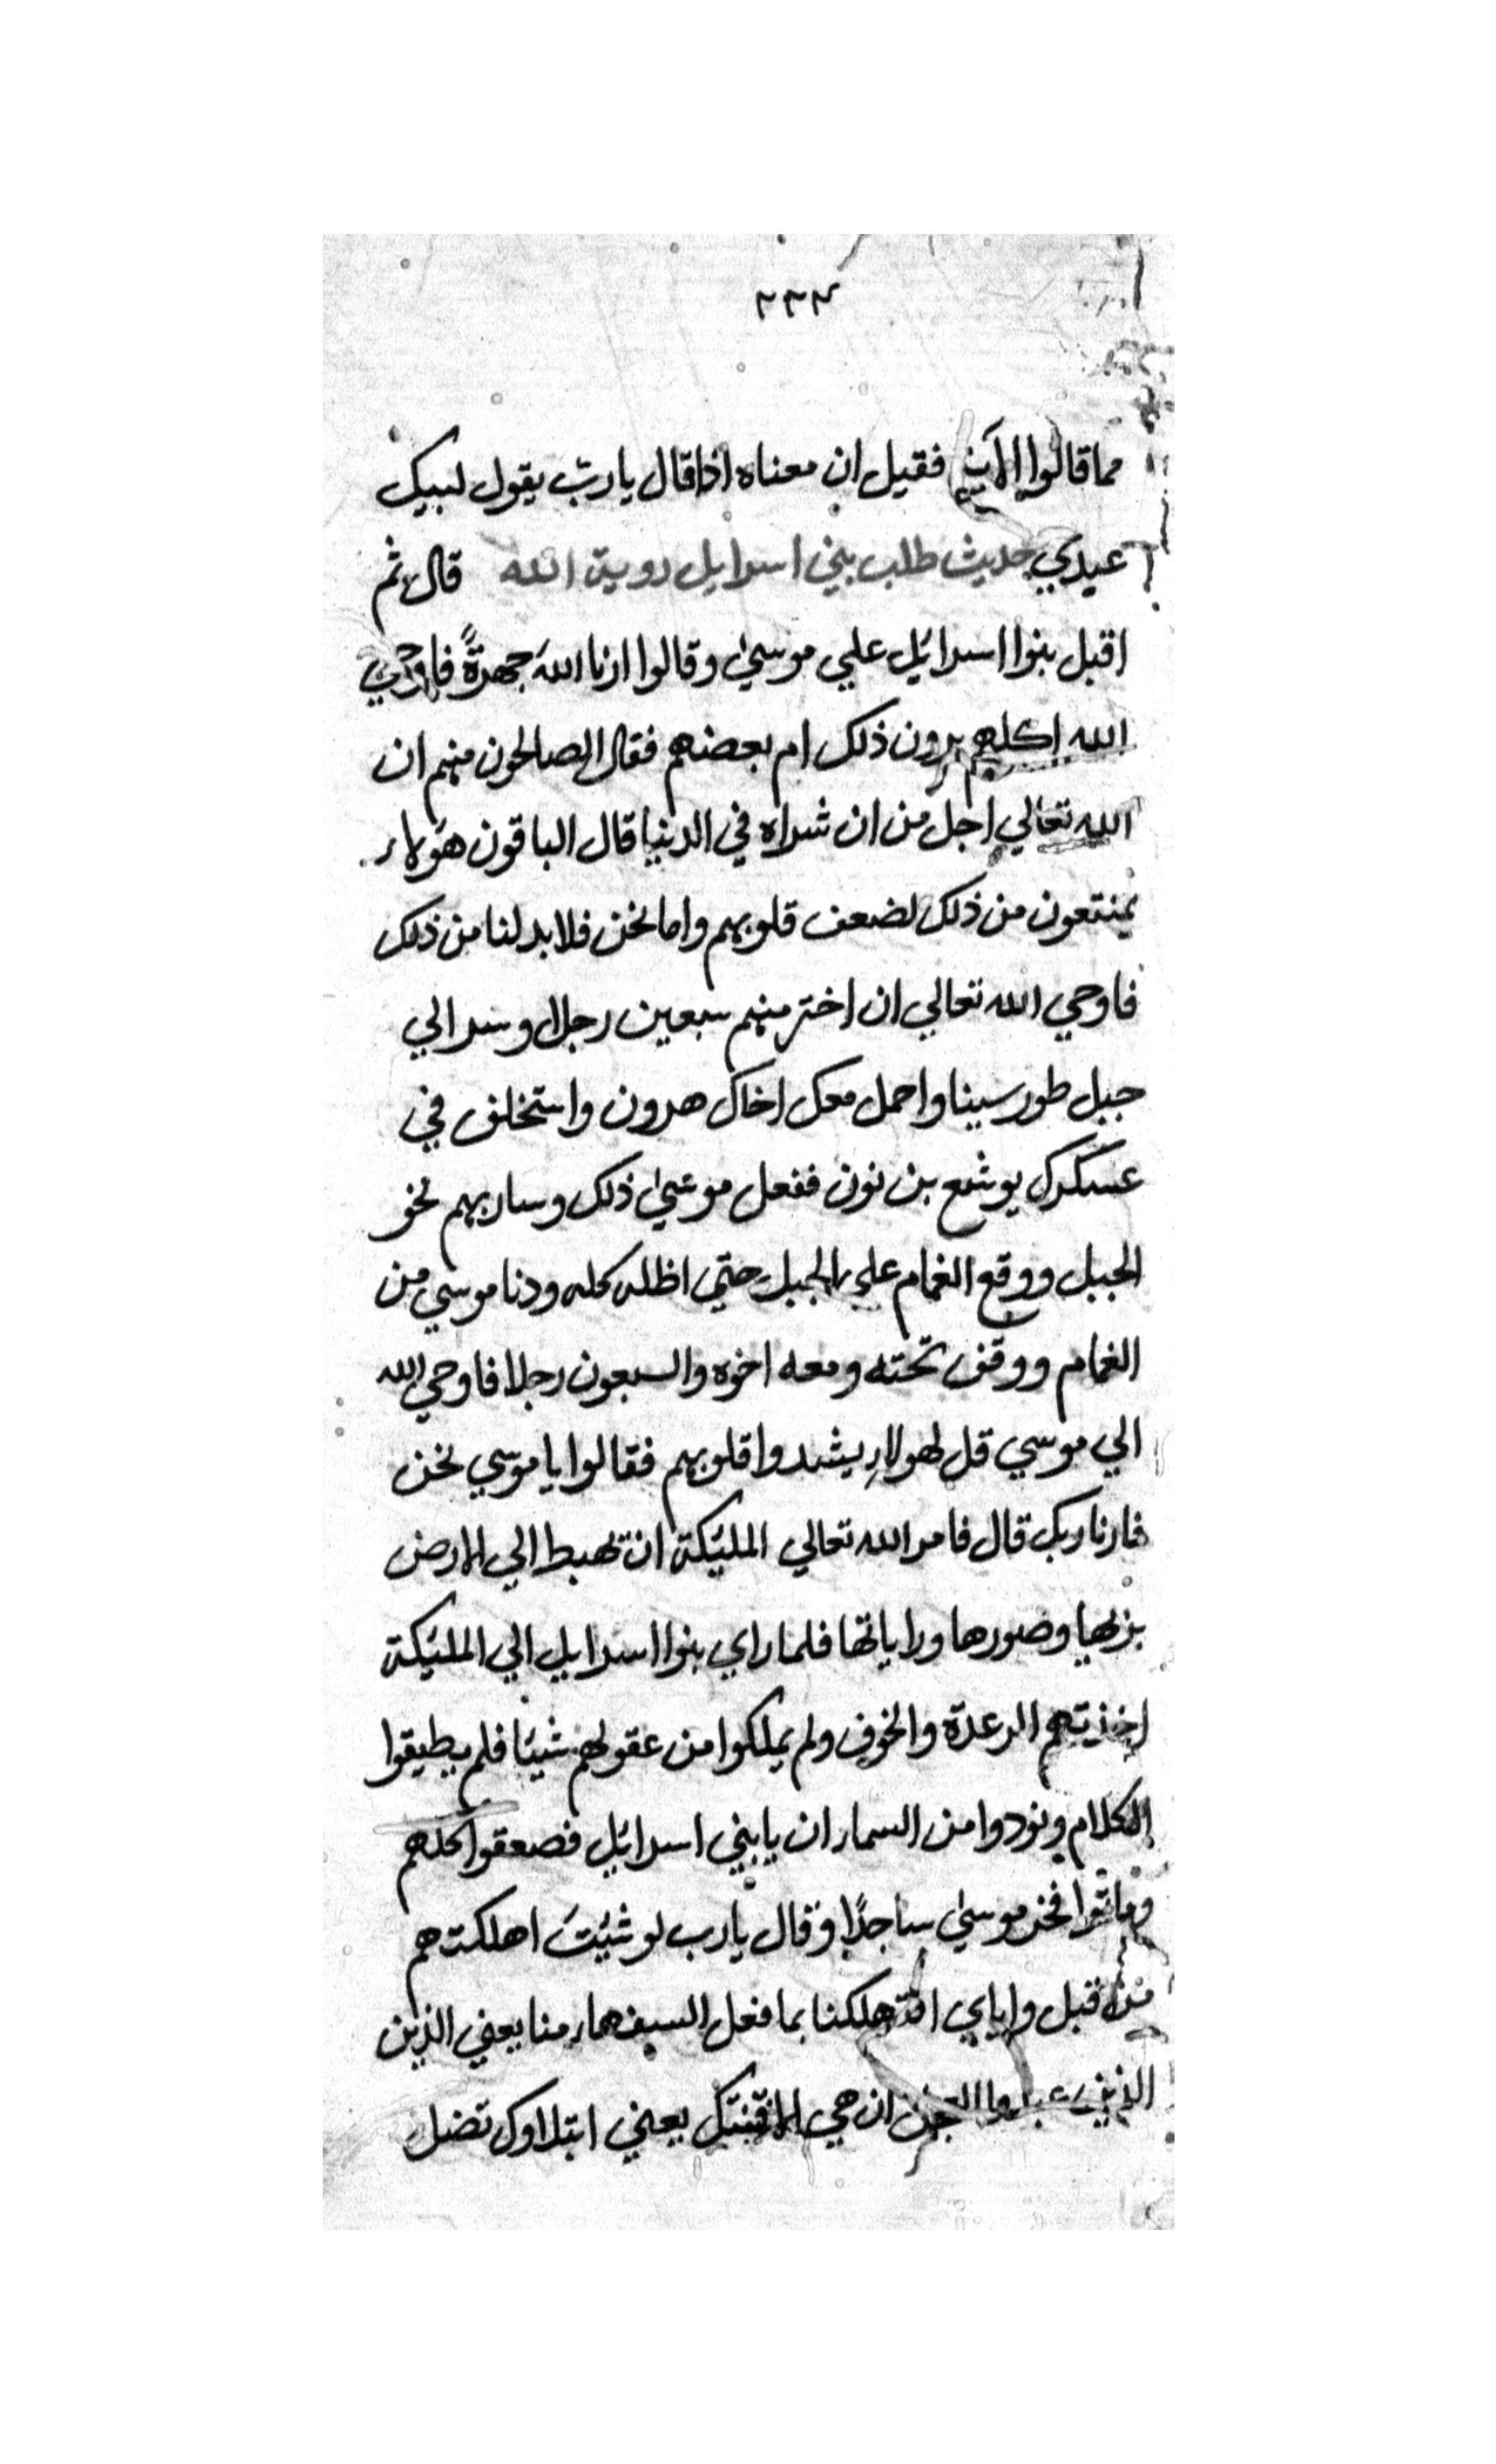 ٢٣٣
مما قالوا الاية فقيل ان معناه اذا قال يا ربّ يقول لبيك
عبدي حديث طلب بني اسرايل روية الله قال ثم
اقبل بنوا اسرائيل علي موسيٰ وقالوا ارنا اللهَ جهرةً فاوحي
الله اكلهم يرون ذلك ام بعضهم فقال الصالحون منهم ان
الله تعالي اجل من ان نراه في الدنيا قال الباقون هؤلاء
يمنتعون من ذلك لضعف قلوبهم واما نحن فلا بد لنا من ذلك
فاوحي الله تعالي ان اختر منهم سبعين رجلا وسر الي
جبل طور سينا واحمل معك اخاك هرون واستخلف في
عسكرك يوشع بن نون ففعل موسيٰ ذلك وسار بهم نحو
الجبل ووقع الغمام علي الجبل حتي اظله كله ودنا موسي من
الغمام ووقف تحته ومعه اخوه والسبعون رجلا فاوحي الله
الي موسي قل لهولاء يشدوا قلوبهم فقالوا يا موسي نحن
فارنا ربك قال فامر الله تعالي المليكة ان تهبط الي الارض
بزيها وصورها وراياتها فلما راي بنوا اسرايل الي المليكة
اخذتهم الرعدة والخوف ولم يملكوا من عقولهم شيئا فلم يطيقوا
الكلام ونودوا من السماء ان يا بني اسرائيل فصعقوا كلهم
وماتوا فخر موسيٰ ساجدًا وقال يا رب لو شئتَ اهلكتهم
من قبل واياي اتهلكنا بما فعل السفهاء منا يعني الذين
الذين عبدوا العجل ان هي الا فتنتك يعني ابتلاوك تضل